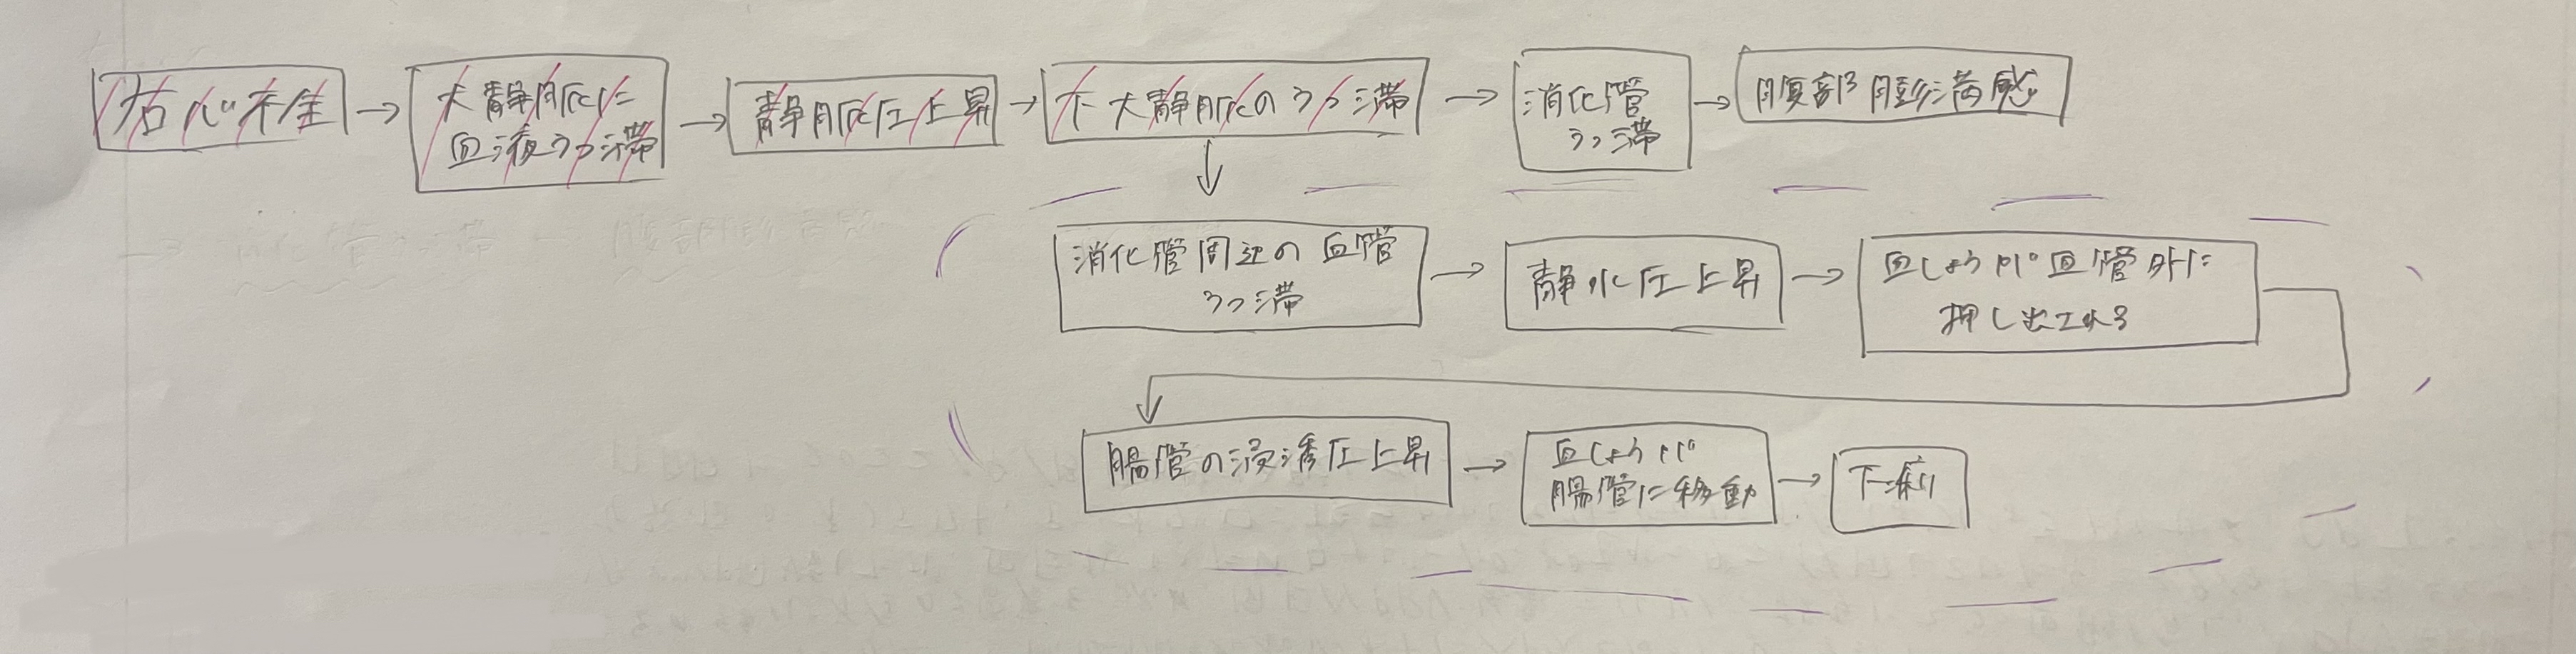 右心不全 → 大静脈に → 静脈圧上昇 → 下大静脈のうっ滞 → 消化管 →腹部膨満感
血液うっ滞
うっ滞
↓
消化管周辺の血管 → 静水圧上昇 → 血しょうが血管外に
うっ滞
押し出される
腸管の浸透圧上昇 → 血しょうが → 下痢
腸管に移動